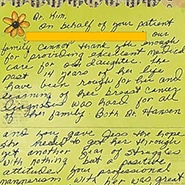 Dr. Kim,
On behalf of your patient
our
family cannot thank you enough
for providing excellent medical
care for our daughter. The
past 14 years of her life
have been rough. The end
learning of her breast cancer
Diagnosis was hard for all
of the family. Both Dr. Hansen
and you gave Jess the hope
she needed to get her through
yet another Goal of Strength
with nothing but a positive
attitude. Your professional
mannerism with her was great